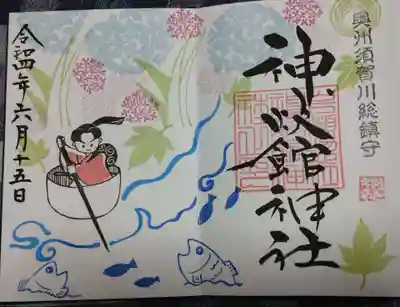 奥州須賀川総鎮守
神炊館神社
令和四年六月十五日